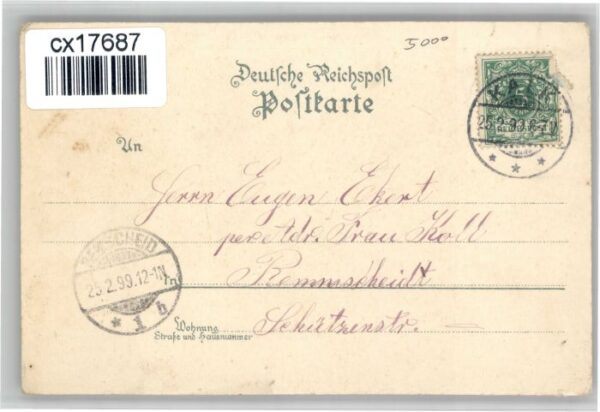 cx17687
5000
Deutsche Reichspost
Postkarte
25.2.99.6-7N
An
Herrn Eugen Ekert
per Adr. Frau Koll
REMSCHEID
25.2.99.12-1N
* 1 b
Remmscheidt
Wohnung
Straße und Hausnummer
Schützenstr.